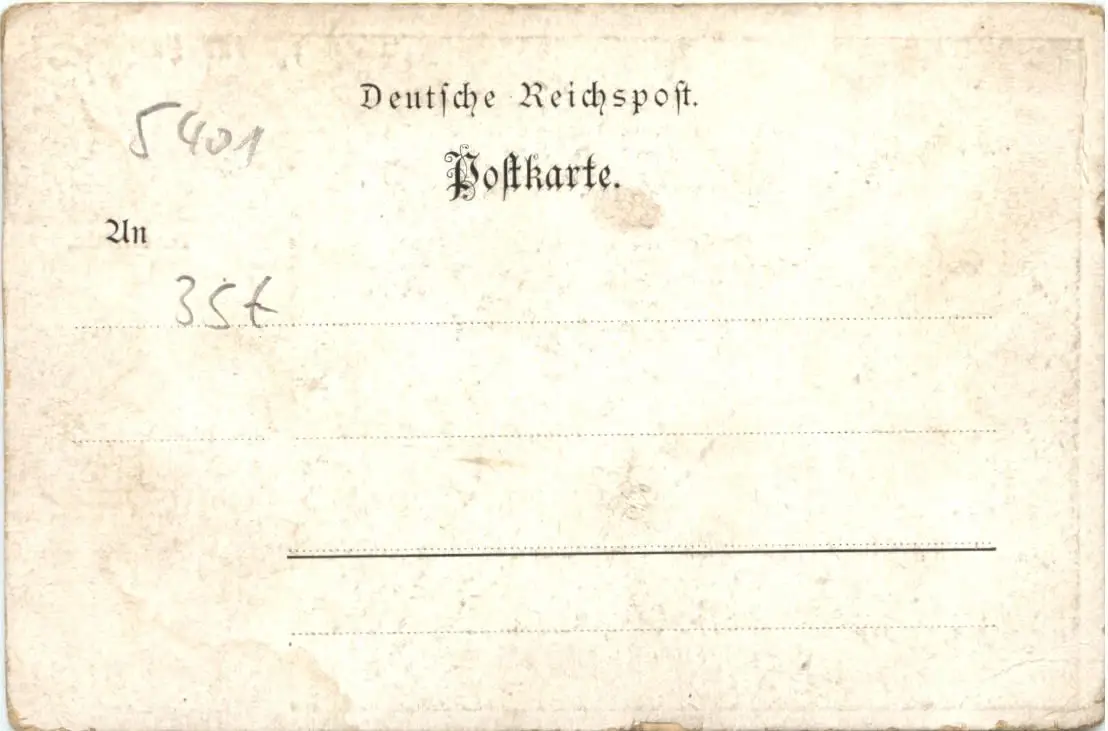 Deutſche Reichspoſt.
5401
Poſtkarte.
An
35t